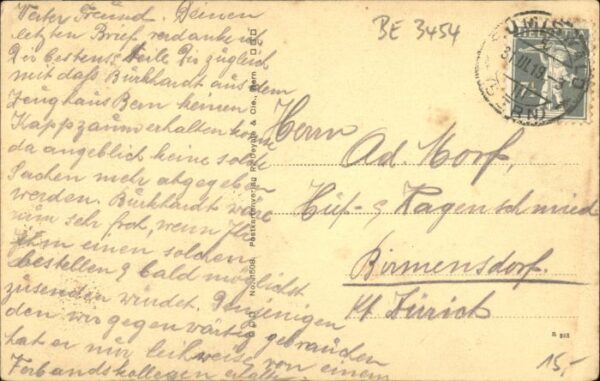 Werter Freund. Deinen
letzten Brief verdankend
Dir bestens, teile Dir zugleich
mit daß Burkhardt aus dem
Zeughaus Bern keinen
Kappzaum erhalten konnte
da angeblich keine solche
Sachen mehr abgegeben
werden. Burkhardt wäre
nun sehr froh, wenn Du
ihm einen solchen
bestellen & bald möglichst
zusenden würdest. Denjenigen
den wir gegenwärtig gebrauchen
hat er nur leihweise von einem
Verbandskollegen erhalten
Postkartenverlag & Cie., Bern
BE 3454
SUMISWALD
(BERN)
Herrn
Ad. Morf,
Huf- & Wagenschmied
Birmensdorf.
Kt. Zürich
15,-